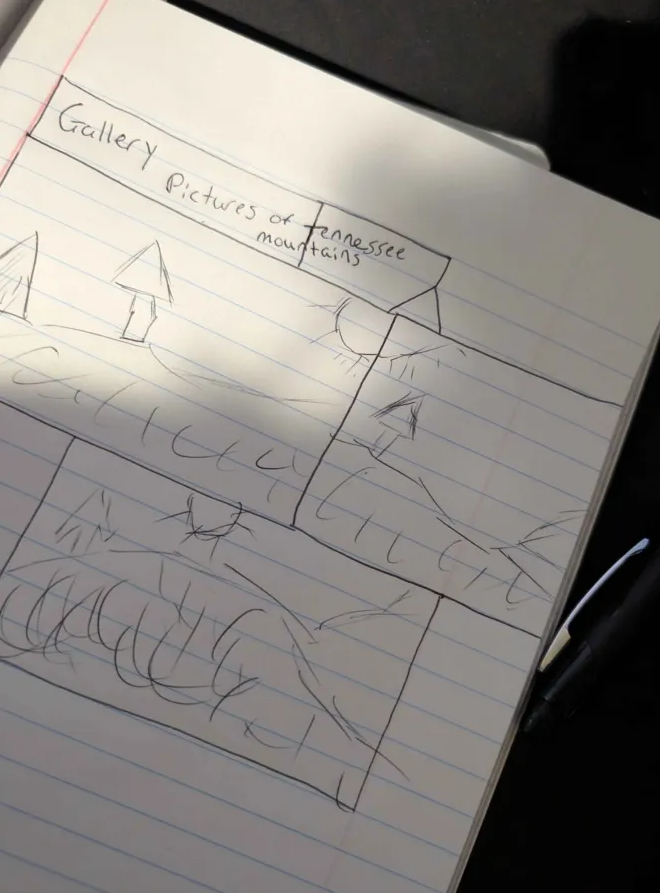 Gallery
Pictures of Tennessee
mountains